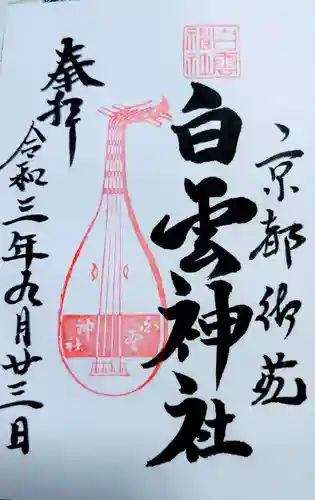 京都御苑
白雲神社
白雲神社
白雲神社
奉拝
令和三年九月廿三日